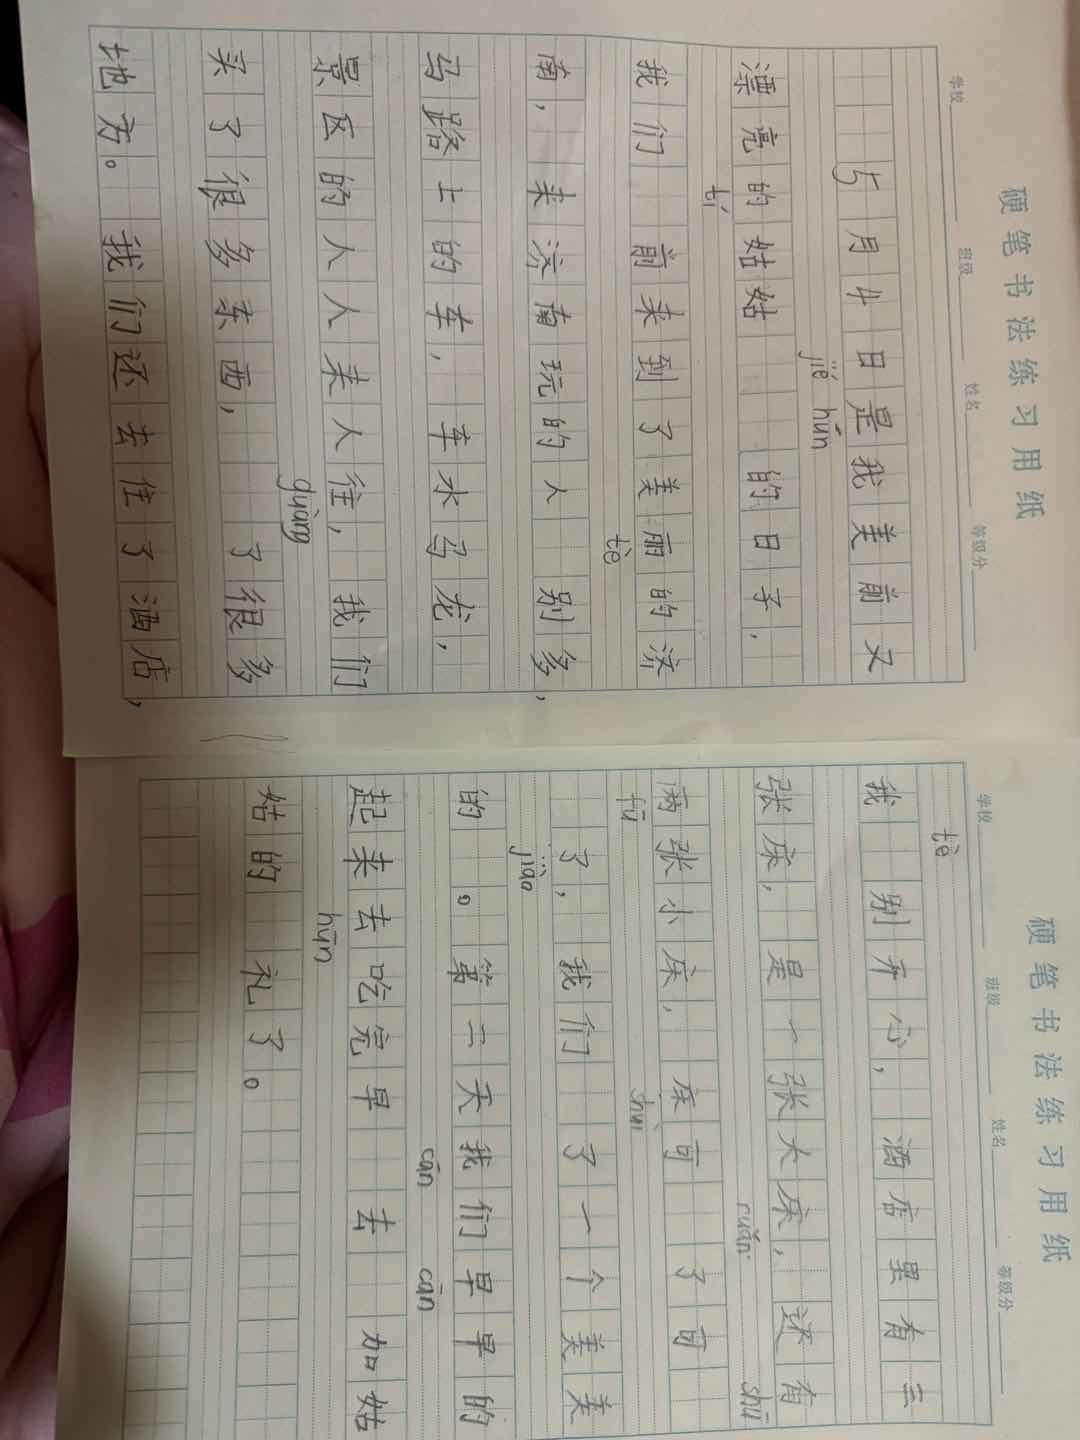 硬笔书法练习用纸
学校 班级 姓名 等级分
5月4日是我美前又
jié hūn
漂亮的姑姑 的日子，
tí
我们 前来到了美丽的济
tè
南，来济南玩的人 别多，
马路上的车，车水马龙，
景区的人人来人往，我们
guàng
买了很多东西， 了很多
地方。我们还去住了酒店，
硬笔书法练习用纸
学校 班级 姓名 等级分
tè
我 别开心，酒店里有三
张床，是一张大床，还有
ruǎn shū
两张小床，床可 了可
fū shuì
了，我们 了一个美美
jiào
的 。第二天我们早早的
cān cān
起来去吃完早 去 加姑
hūn
姑的 礼了。